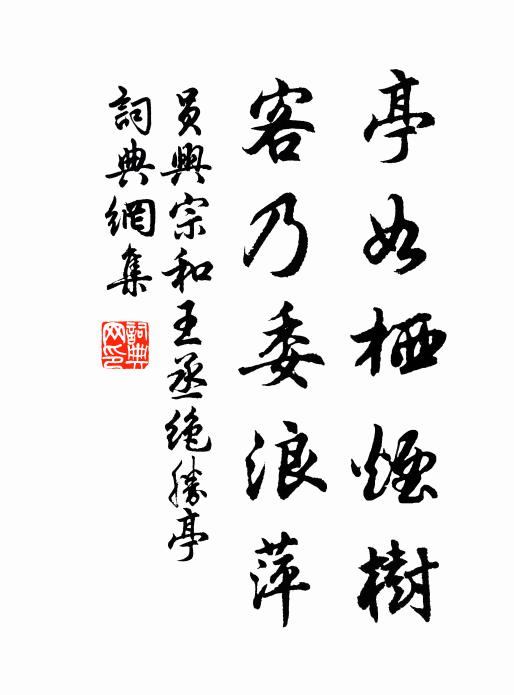 亭如栖煙樹
客乃委浪萍
員興宗和王丞绝勝亭
詞典網集
詞典网印